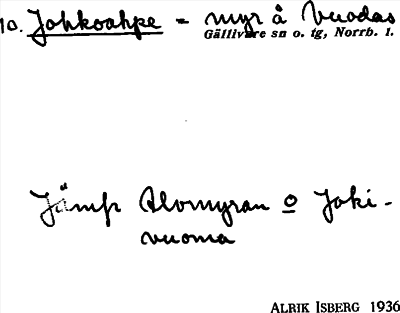 10. Johkoahpe = myr å Vuodas
Gällivare sn o. tg, Norrb. l.
Jämf Alvomyran o Joki-
vuoma
ALRIK ISBERG 1936